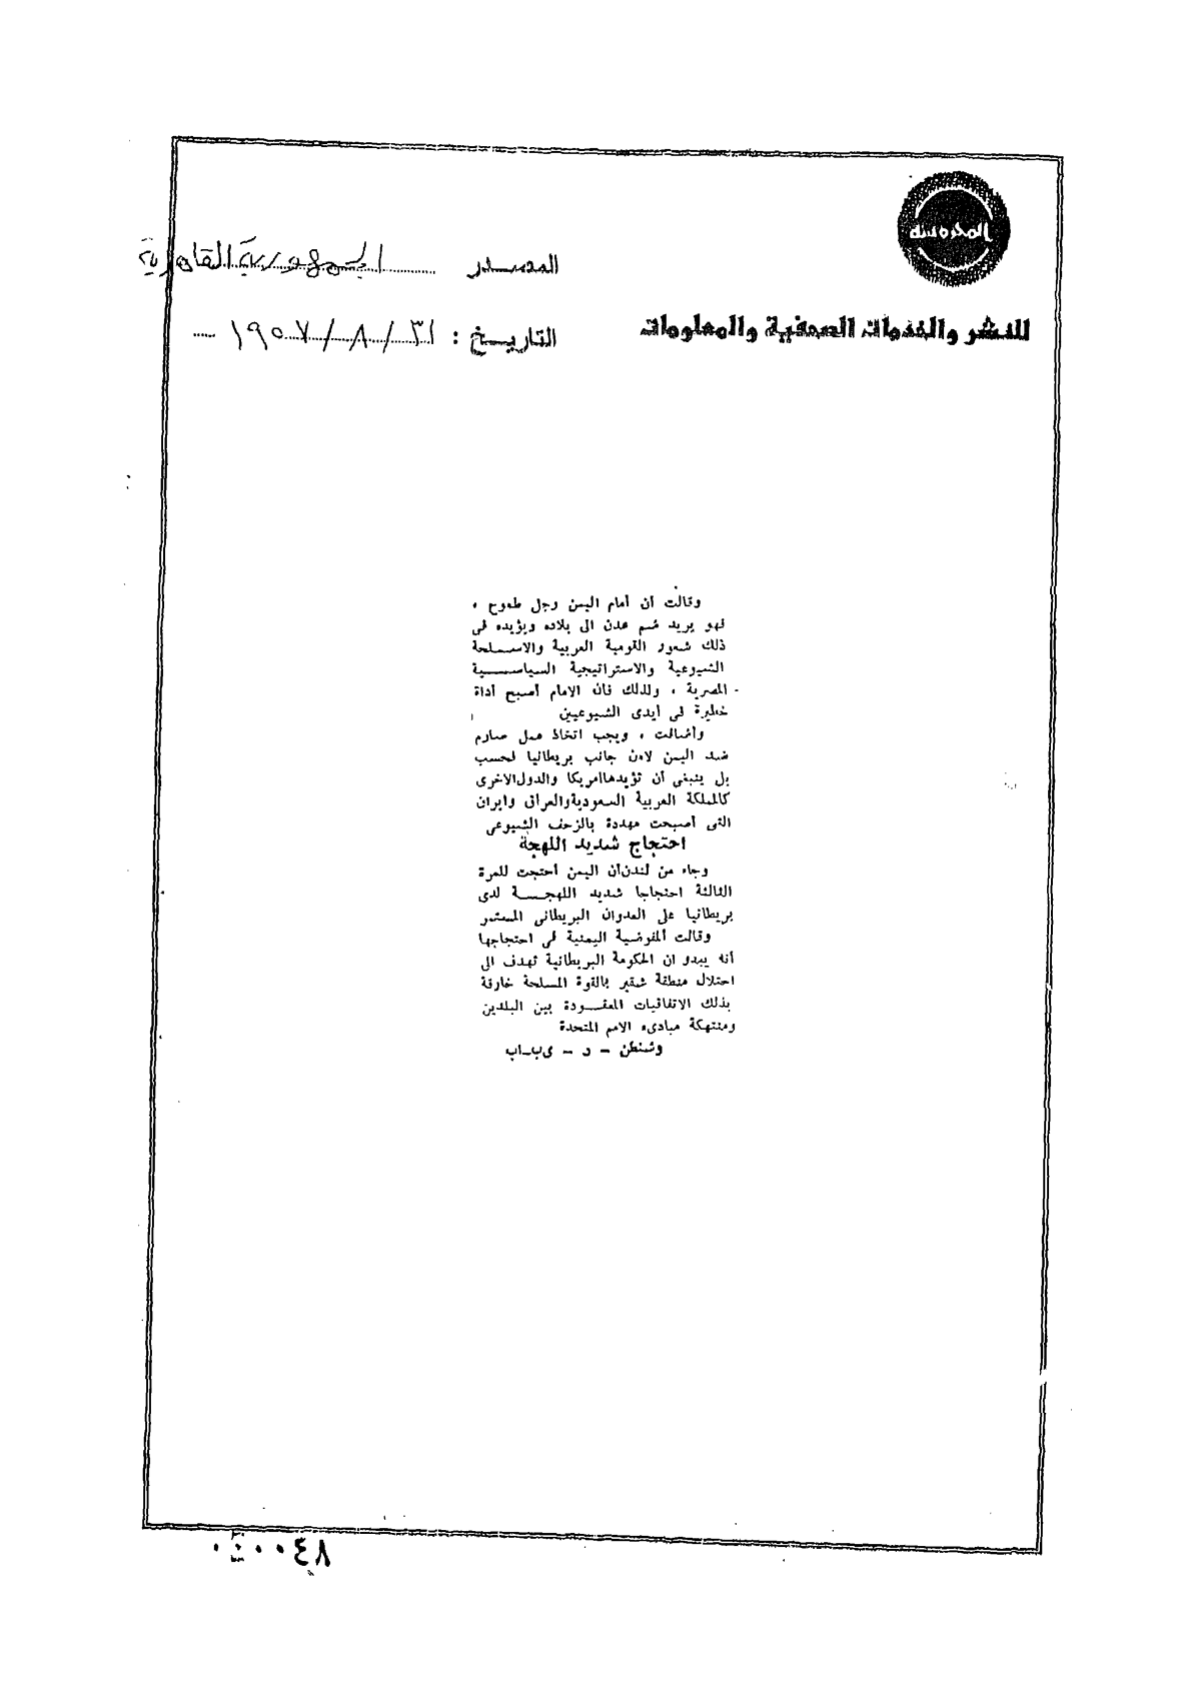 المحروسة
المصدر الجمهورية القاهرية
للنشر والخدمات الصحفية والمعلومات
التاريخ : ٣١/٨/١٩٥٧
وقالت أن أمام اليمن رجل طموح ،
فهو يريد ضم عدن الى بلاده ويؤيده فى
ذلك شعور القومية العربية والاسلحة
الشيوعية والاستراتيجية السياسية
المصرية ، ولذلك فان الامام أصبح أداة
خطيرة فى أيدى الشيوعيين
وأضافت ، ويجب اتخاذ عمل صارم
ضد اليمن لامن جانب بريطانيا فحسب
بل ينبغى أن تؤيدها أمريكا والدول الاخرى
كالمملكة العربية السعودية والعراق وايران
التى أصبحت مهددة بالزحف الشيوعى
احتجاج شديد اللهجة
وجاء من لندن أن اليمن أحتجت للمرة
الثالثة احتجاجا شديد اللهجة لدى
بريطانيا على العدوان البريطانى المستمر
وقالت المفوضية اليمنية فى احتجاجها
أنه يبدو ان الحكومة البريطانية تهدف الى
احتلال منطقة شقير بالقوة المسلحة خارقة
بذلك الاتفاقيات المعقودة بين البلدين
ومنتهكة مبادىء الامم المتحدة
وشنطن – ر – ى ب – اب
٠٤٠٠٤٨